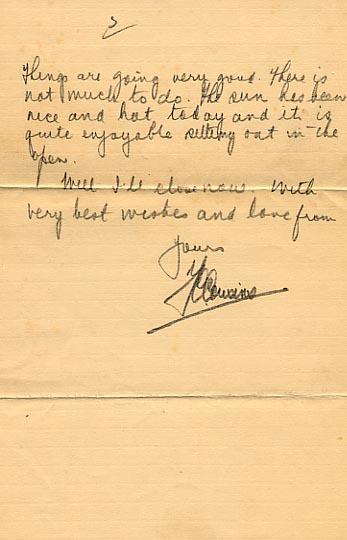 3
Things are going very good. There is
not much to do. The sun has been
nice and hot today and it is
quite enjoyable sitting out in the
open.
Well I'll close now. With
very best wishes and love from
Yours
Cousins